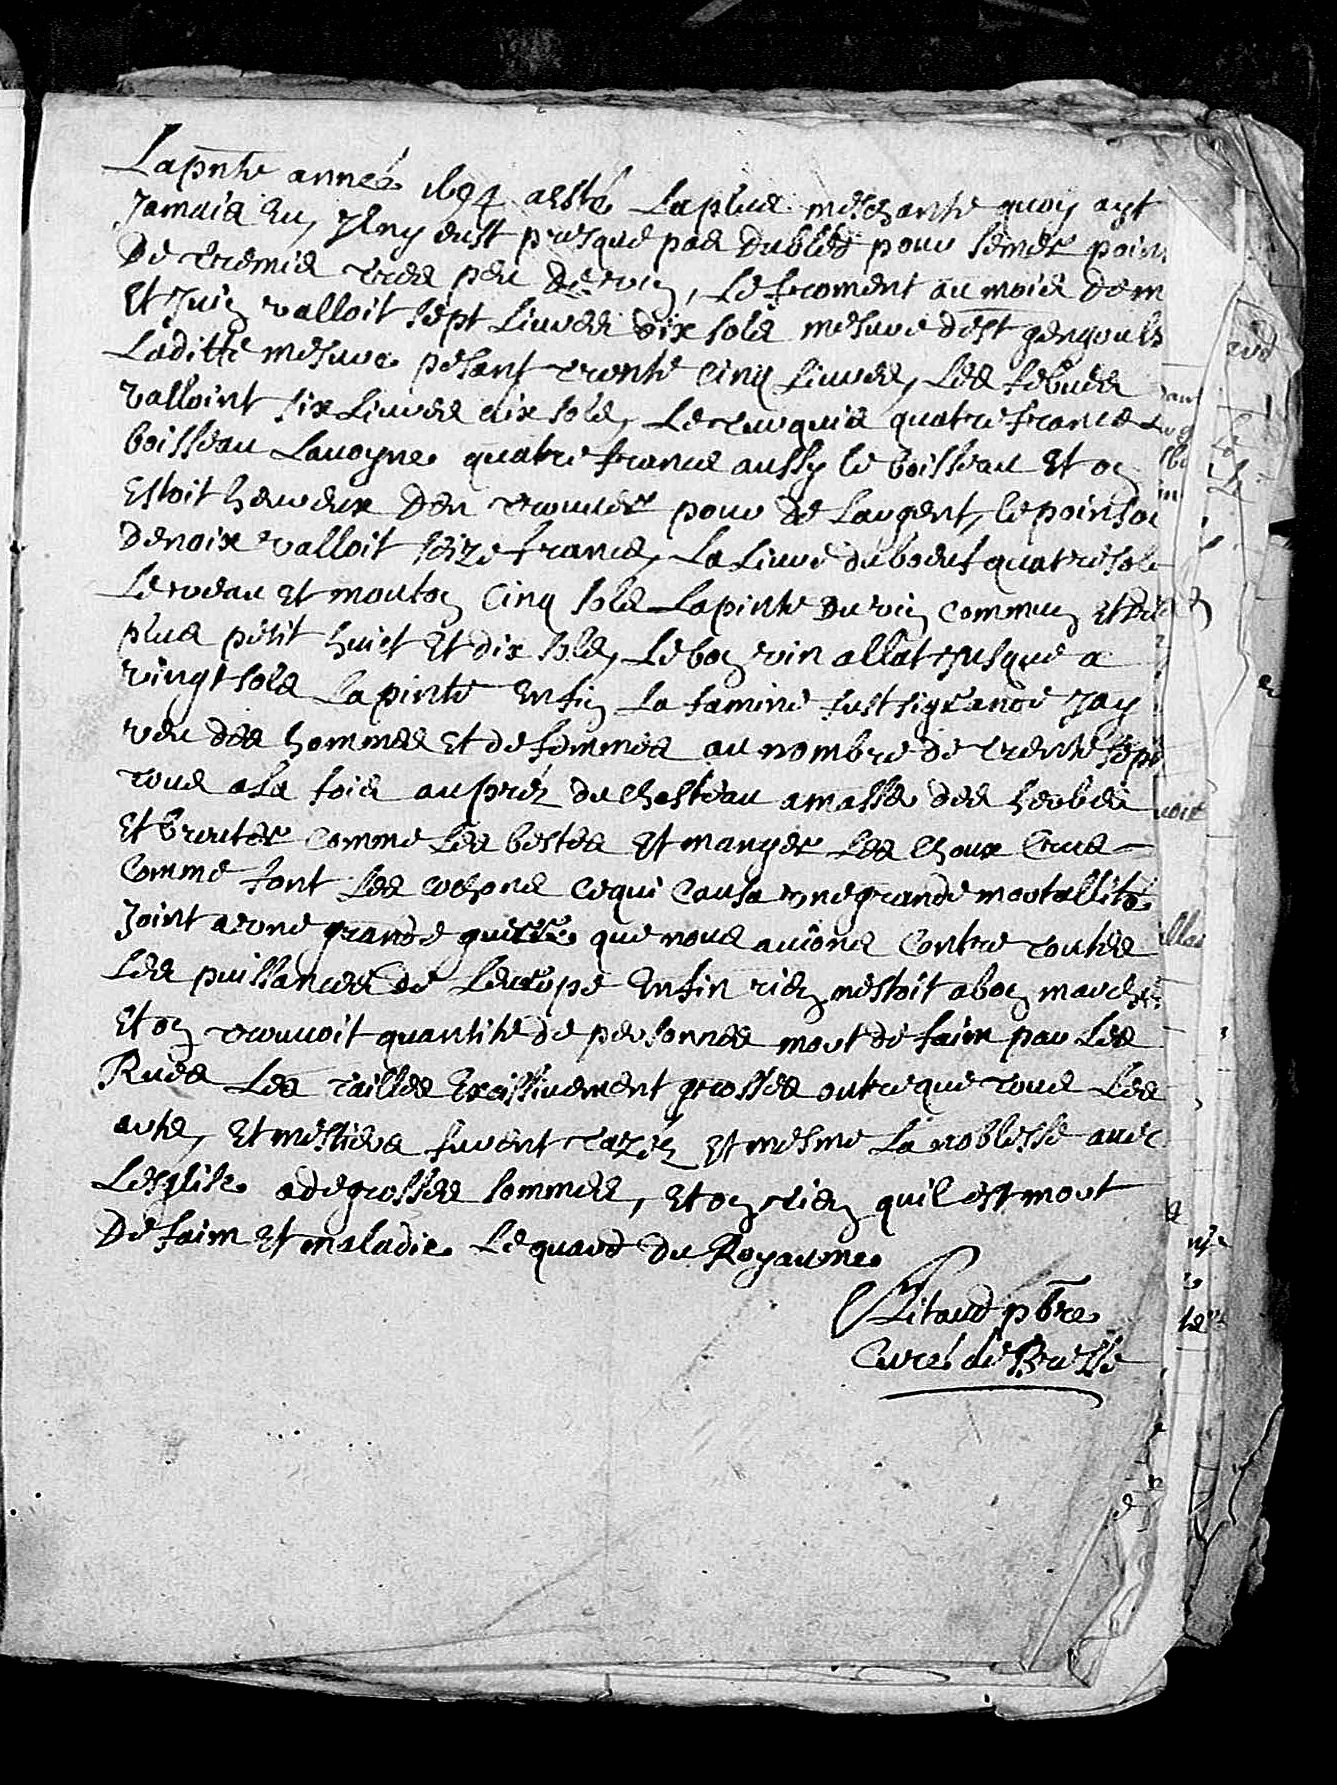 La pnte année 1694 a esté la plus meschante quon ayt
jamais eu, Il ny eust presque pas du bled pour semer point
de tremis tres peu de vin, le froment au mois de m
et Juin valloit sept livres dix sols mesure de st gengoulx
Laditte mesure pesant trente cinq livres, Les febves
valloint six livres dix sols, Le turquis quatre francs le
boisseau Lavoyne quatre francs aussy le boisseau et on
estoit heureux den trouver pour de Largent, le poinson
de noix valloit seize francs, La livre du boeuf quatre sols
Le veau et mouton cinq sols La pinte du vin commun et du
plus petit huict et dix sols, Le bon vin allat jusque a
vingt sols la pinte Enfin La famine fust si grande Jay
veu des hommes et de femmes au nombre de trente sept
tous a la fois auprez du chasteau amasse des herbes
et brouter comme Les bestes et manger Les choux crus
comme font Les cochons ce qui causa une grande mortallité
joint a une grande guerre que nous avions contre toutes
Les puissances de Leurope Enfin rien nestoit a bon marché
et on trouvoit quantité de personnes mort de faim par Les
Rues Les tailles Excessivement grosses outre que tous Les
arts, et mestiers furent taxéz et mesme La noblesse avec
Lesglise a de grosses sommes, et on tien quil est mort
De faim et maladie Le quard du Royaume
Litaud pbre
Curé de Bresse